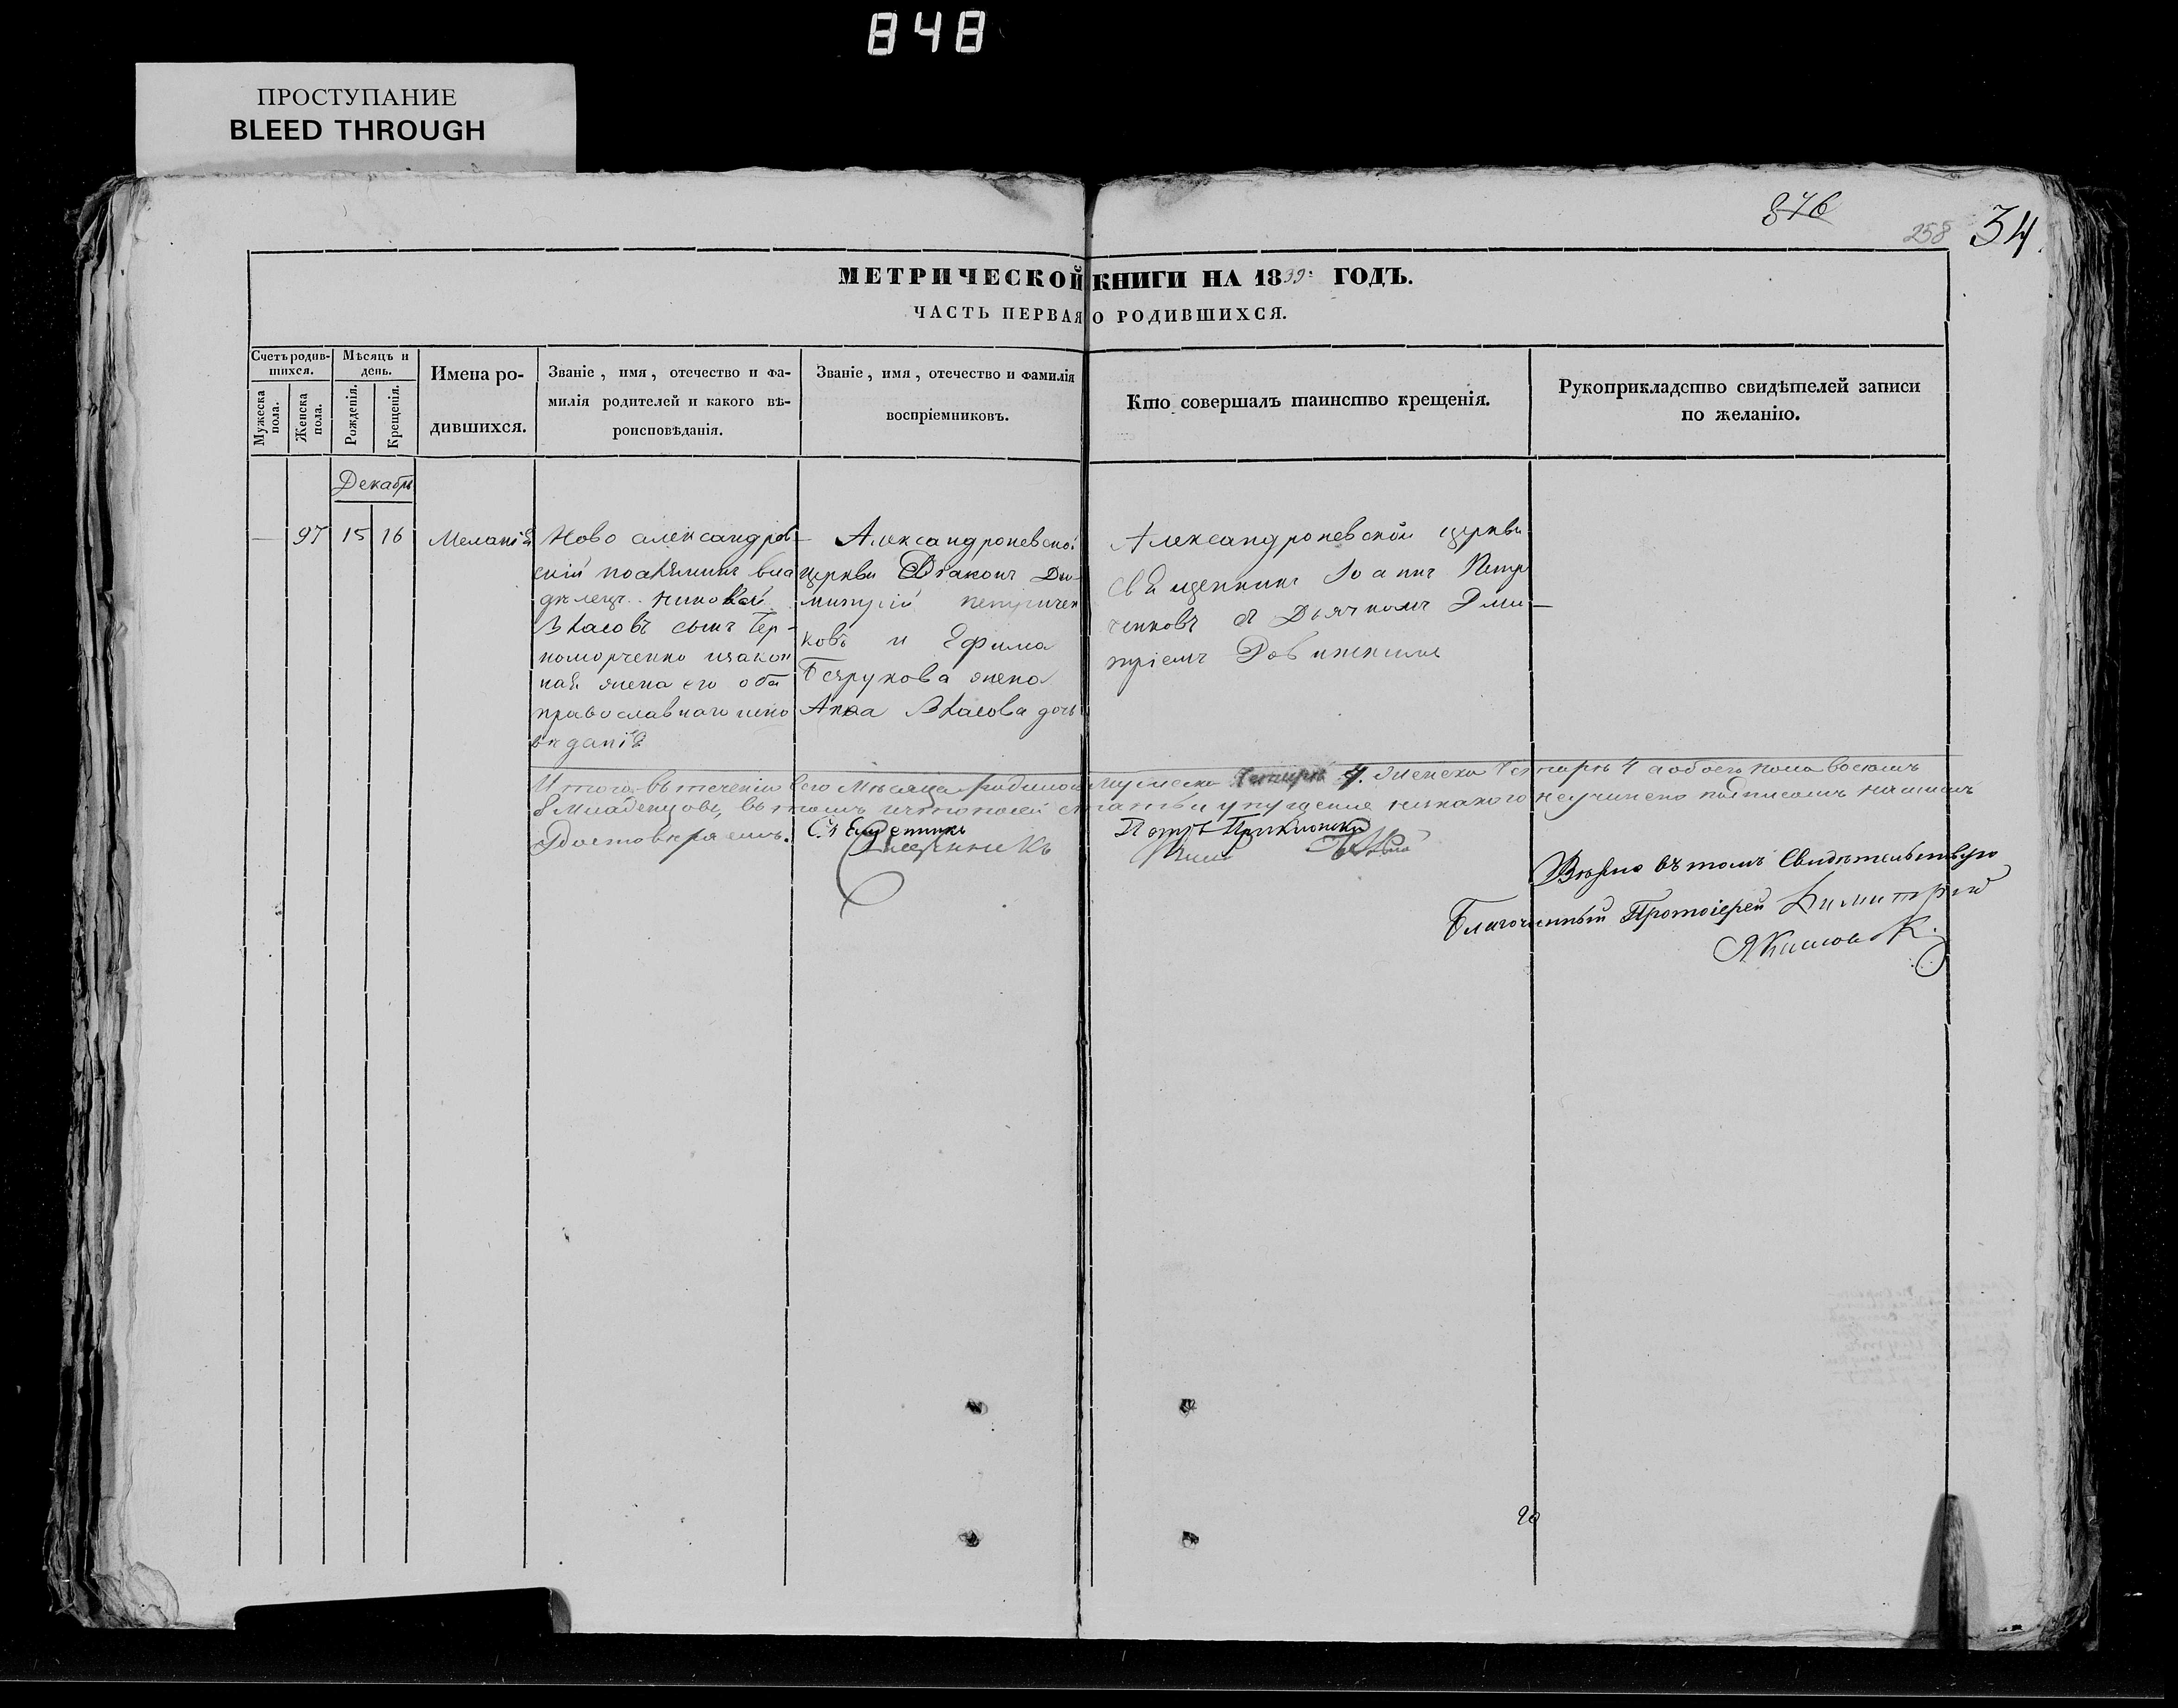 848
ПРОСТУПАНИЕ
BLEED THROUGH
846
258
34
МЕТРИЧЕСКОЙ КНИГИ НА 1839: ГОДЪ.
ЧАСТЬ ПЕРВАЯ О РОДИВШИХСЯ.
Счетъ родив-
шихся.
Мужеска
пола.
Женска
пола.
Мѣсяцъ и
день.
Рожденія.
Крещенія.
Имена ро-
дившихся.
Званіе, имя, отечество и фа-
милія родителей и какого вѣ-
роисповѣданія.
Званіе, имя, отечество и фамилія
воспріемниковъ.
Кто совершалъ таинство крещенія.
Рукоприкладство свидѣтелей записи
по желанію.
Декабрь
— 97 15 16
Меланія
Ново александров
скій посѣлянинъ вла
дѣлецъ Николай
Власовъ сынъ Чер-
номорченко изакон
ная жена его оба
православнаго испо
вѣданія
Александроневской
церкви Дьяконъ Ди-
митрій Петричен
ковъ и Ефима
Безрукова жена
Анна Власова дочь
Александроневской церкви
Священникъ Іоаннъ Петри
ченковъ съ Дьячкомъ Дми—
тріемъ
Итого въ теченіи сего Мѣсяца родилось мужеска Четыре 4. женска Четыре 4 а обоего пола восемь
8 Младенцовъ, въ томъ что упущенія никакого неучинено подписомъ нашимъ
Достовѣряемъ.
Священникъ
Вѣрно въ томъ Свидѣтельствую
Благочинный Протоіерей Димитрій
20